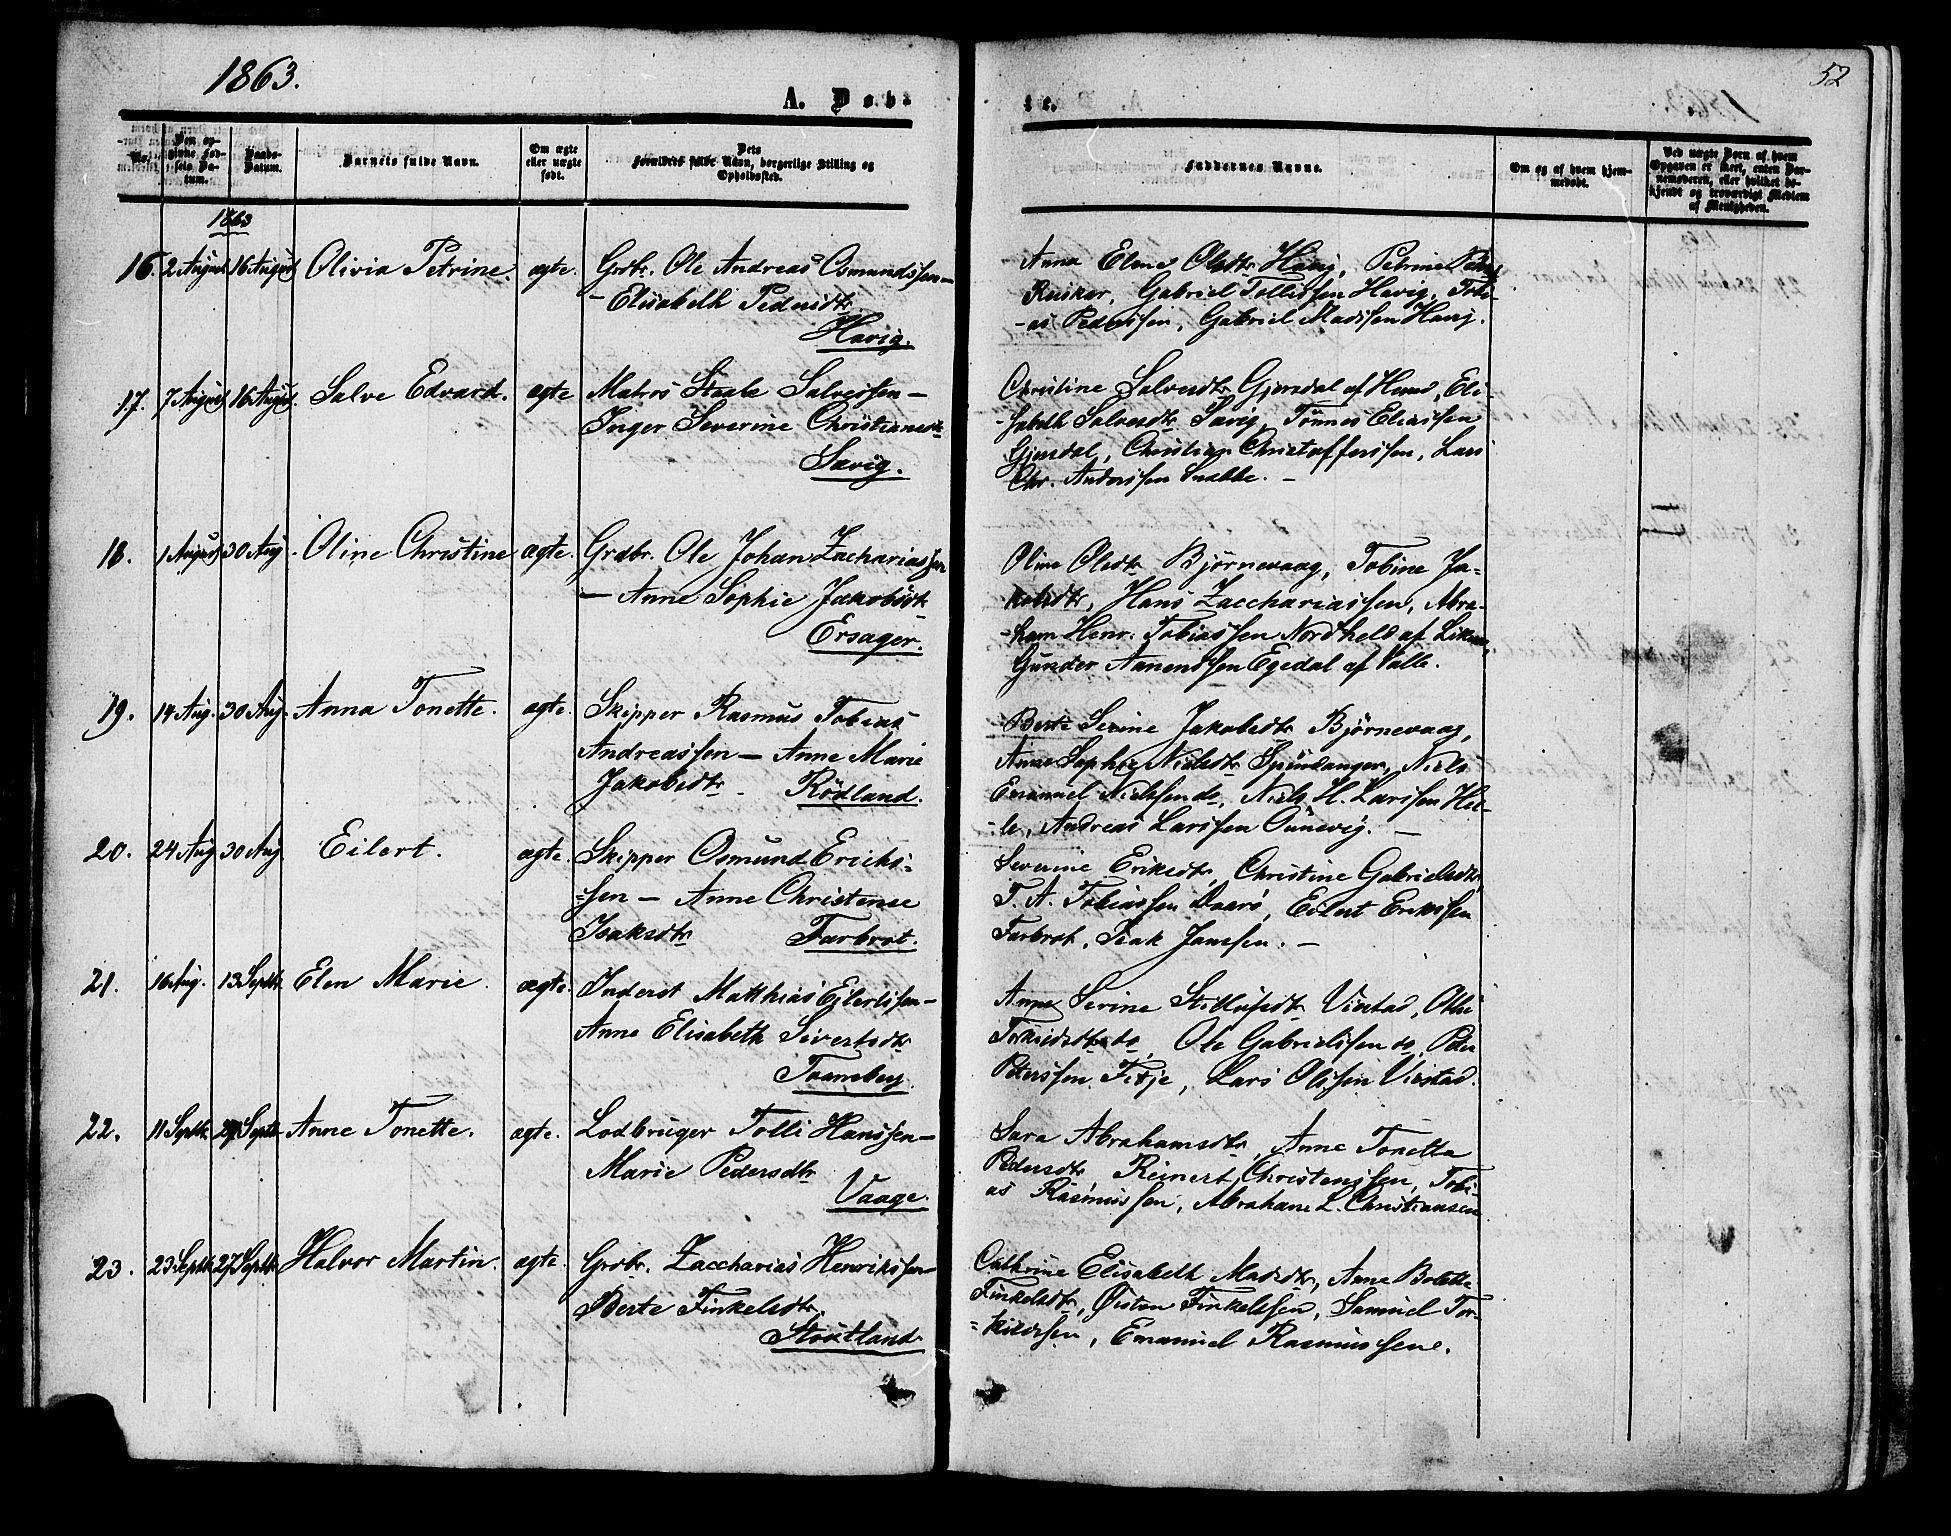 1863.
A. Døb-
te.
52
No.
Den opgivne Fødsels Datum.
Daabs-Datum.
Barnets fulde Navn.
Om ægte eller uægte født.
Dets Forældres fulde Navn, borgerlige Stilling og Opholdssted.
Faddernes Navne.
Om og af hvem hjemmedøbt.
Ved uægte Børn af hvem Opgaven er skeet, enten Barnemoderen, eller hvilket bekjendt og troværdigt Medlem af Menigheden.
1863
16. 2 August 16 August Olivia Petrine. ægte. Grdbr. Ole Andreas Osmundssen –
– Elisabeth Pedersdtr
Havig.
Anna Elene Olsdtr Havig, Petrine
Gabriel Tollissen Havig, Tobi-
-as Pederssen, Gabriel Madssen Havig.
17. 7 August 16 August. Salve Edvard. ægte Matros Salvessen –
Inger Severine Christiansdtr
Sævig.
Christine Salvesdtr Gjersdal af Herred, Eli-
-sabeth Salvesdtr Sævig, Tönnes Eliassen
Gjersdal, Christian Christofferssen, Lars
Chr. Anderssen
18. 1 August 30 Aug. Oline Christine ægte. Grdbr. Ole Johan Zachariassen
– Anne Sophie Jakobsdtr
Ersager.
Oline Olsdtr Bjørnevaag, Tobine Ja-
kobsdtr, Hans Zacchariassen, Abra-
-ham Henr. Tobiassen Nordheld af
Gunder Aanendssen Egedal af Valle.
19. 14 Aug. 30 Aug. Anna Tonette. ægte. Skipper Rasmus Tobias
Andreassen – Anne Marie
Jakobsdtr – Rödland.
Berte Serine Jakobsdtr Bjørnevaag,
Anne Sophie Nielsdtr Spindanger, Niels
Emanuel Nielssen do, Niels H. Larssen Hel-
-le, Andreas Larssen –
20. 24 Aug 30 Aug. Eilert. ægte. Skipper Osmund Erichs-
-sen – Anne Christense
Isaksdtr Farbrot.
Severine Eriksdtr, Christine Gabrielsdtr,
T. A. Tobiassen Eilert Erikssen
Farbrot, Isak Janssen. –
21. 16 Aug. 13 Septbr. Elen Marie. ægte. Inderst Matthias Eilertssen –
Anne Elisabeth Sivertsdtr
Tranneberg.
Anne Serine Virstad,
do, Ole Gabrielssen do, Peder
Pederssen Fidje, Lars Olssen Virstad.
22. 11 Septbr. 27 Septbr Anne Tonette. ægte. Lodbruger Tolli Hanssen –
Marie Pedersdtr
Vaage.
Sara Abrahamsdtr, Anne Tonette
Pedersdtr Reinert Christenssen, Tobi-
as Rasmussen, Abraham L. Christiansen
23. 23 Septbr. 27 Septbr. Halvor Martin. ægte. Grdbr. Zaccharias Henrikssen
Berte Tinkelsdtr.
Stoutland
Cathrine Elisabeth Madsdtr, Anne Bolette
Tinkelsdtr, Øisten Tinkelssen, Samuel Tor-
-kildssen, Emanuel Rasmussen.